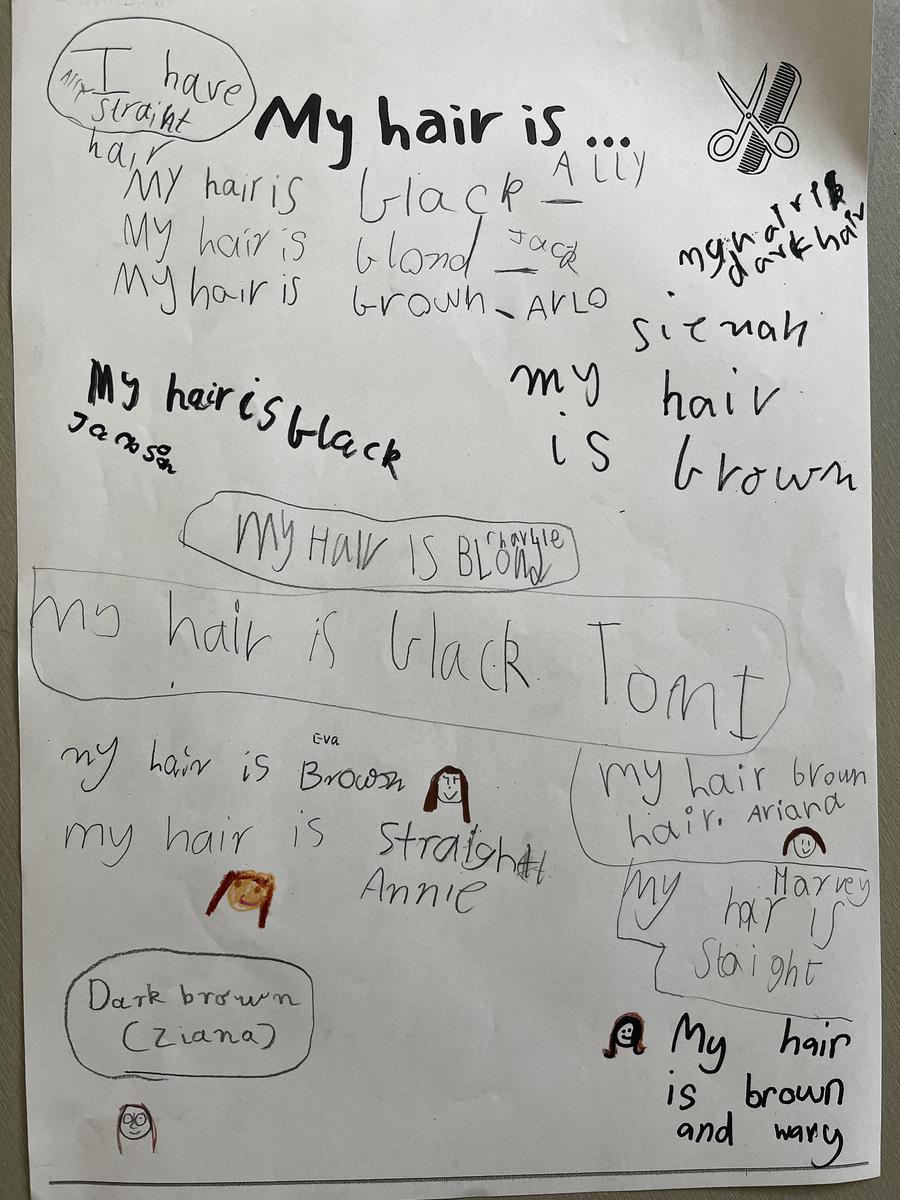 I have
straiht
hair
My hair is ...
My hair is black - Ally
My hair is blond - Jack
My hair is brown - ARLO
my hair is
dark hair
sienah
my hair
is brown
My hair is black
Jameson
My HaIr IS BLOnd
charlie
my hair is black TomI
my hair is Brown
Eva
my hair is straight
Annie
my hair brown
hair. Ariana
My Harvey
hair is
Staight
Dark brown
(Ziana)
My hair
is brown
and wavy